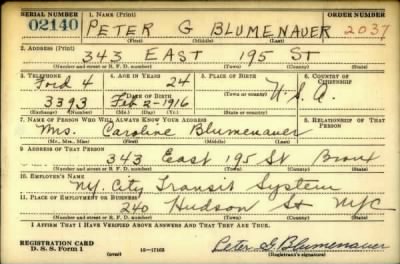 SERIAL NUMBER 1. NAME (Print) ORDER NUMBER
02140 PETER G BLUMENAUER 2037
(First) (Middle) (Last)
2. ADDRESS (Print)
343 EAST 195 ST
(Number and street or R. F. D. number) (Town) (County) (State)
3. TELEPHONE 4. AGE IN YEARS 5. PLACE OF BIRTH 6. COUNTRY OF CITIZENSHIP
Ford 4 24
DATE OF BIRTH (Town or county) U.S.A.
3393 Feb 2-1916
(Exchange) (Number) (Mo.) (Day) (Yr.) (State or country)
7. NAME OF PERSON WHO WILL ALWAYS KNOW YOUR ADDRESS 8. RELATIONSHIP OF THAT PERSON
Mrs. Caroline Blumenauer
(Mr., Mrs., Miss) (First) (Middle) (Last)
9. ADDRESS OF THAT PERSON
343 East 195 St Bronx
(Number and street or R. F. D. number) (Town) (County) (State)
10. EMPLOYER'S NAME
N.Y. City Transit System
11. PLACE OF EMPLOYMENT OR BUSINESS
240 Hudson St NYC
(Number and street or R. F. D. number) (Town) (County) (State)
I AFFIRM THAT I HAVE VERIFIED ABOVE ANSWERS AND THAT THEY ARE TRUE.
REGISTRATION CARD
D. S. S. Form 1 (over) 16—17105 Peter G. Blumenauer